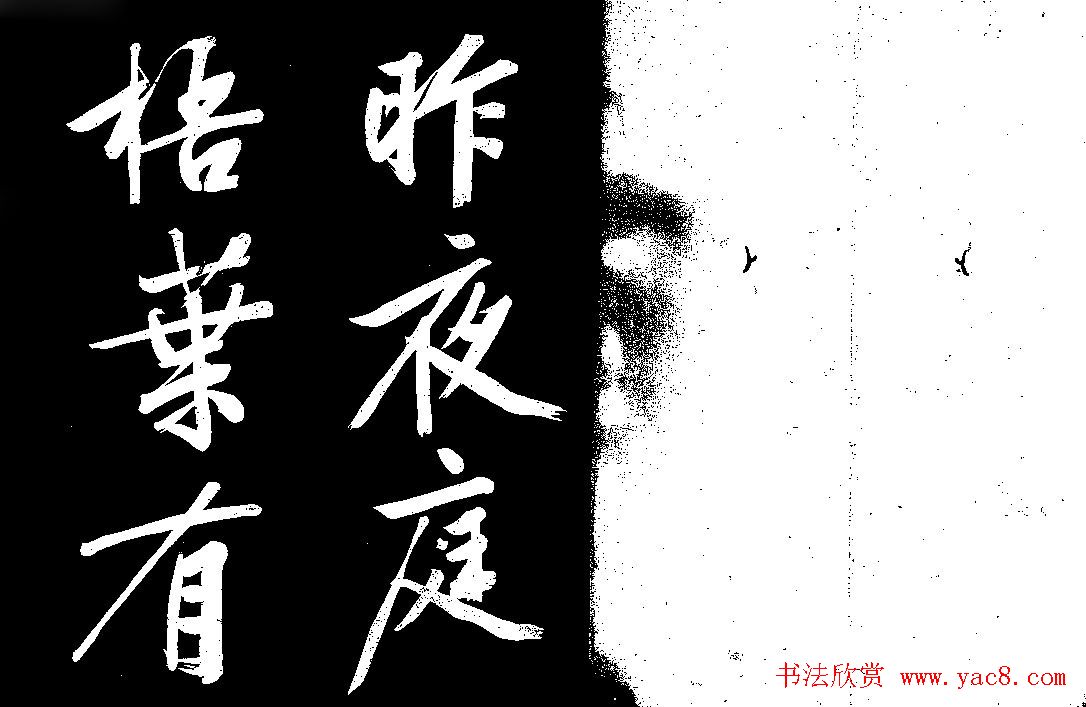 昨夜庭
梧葉有
书法欣赏 www.yac8.com